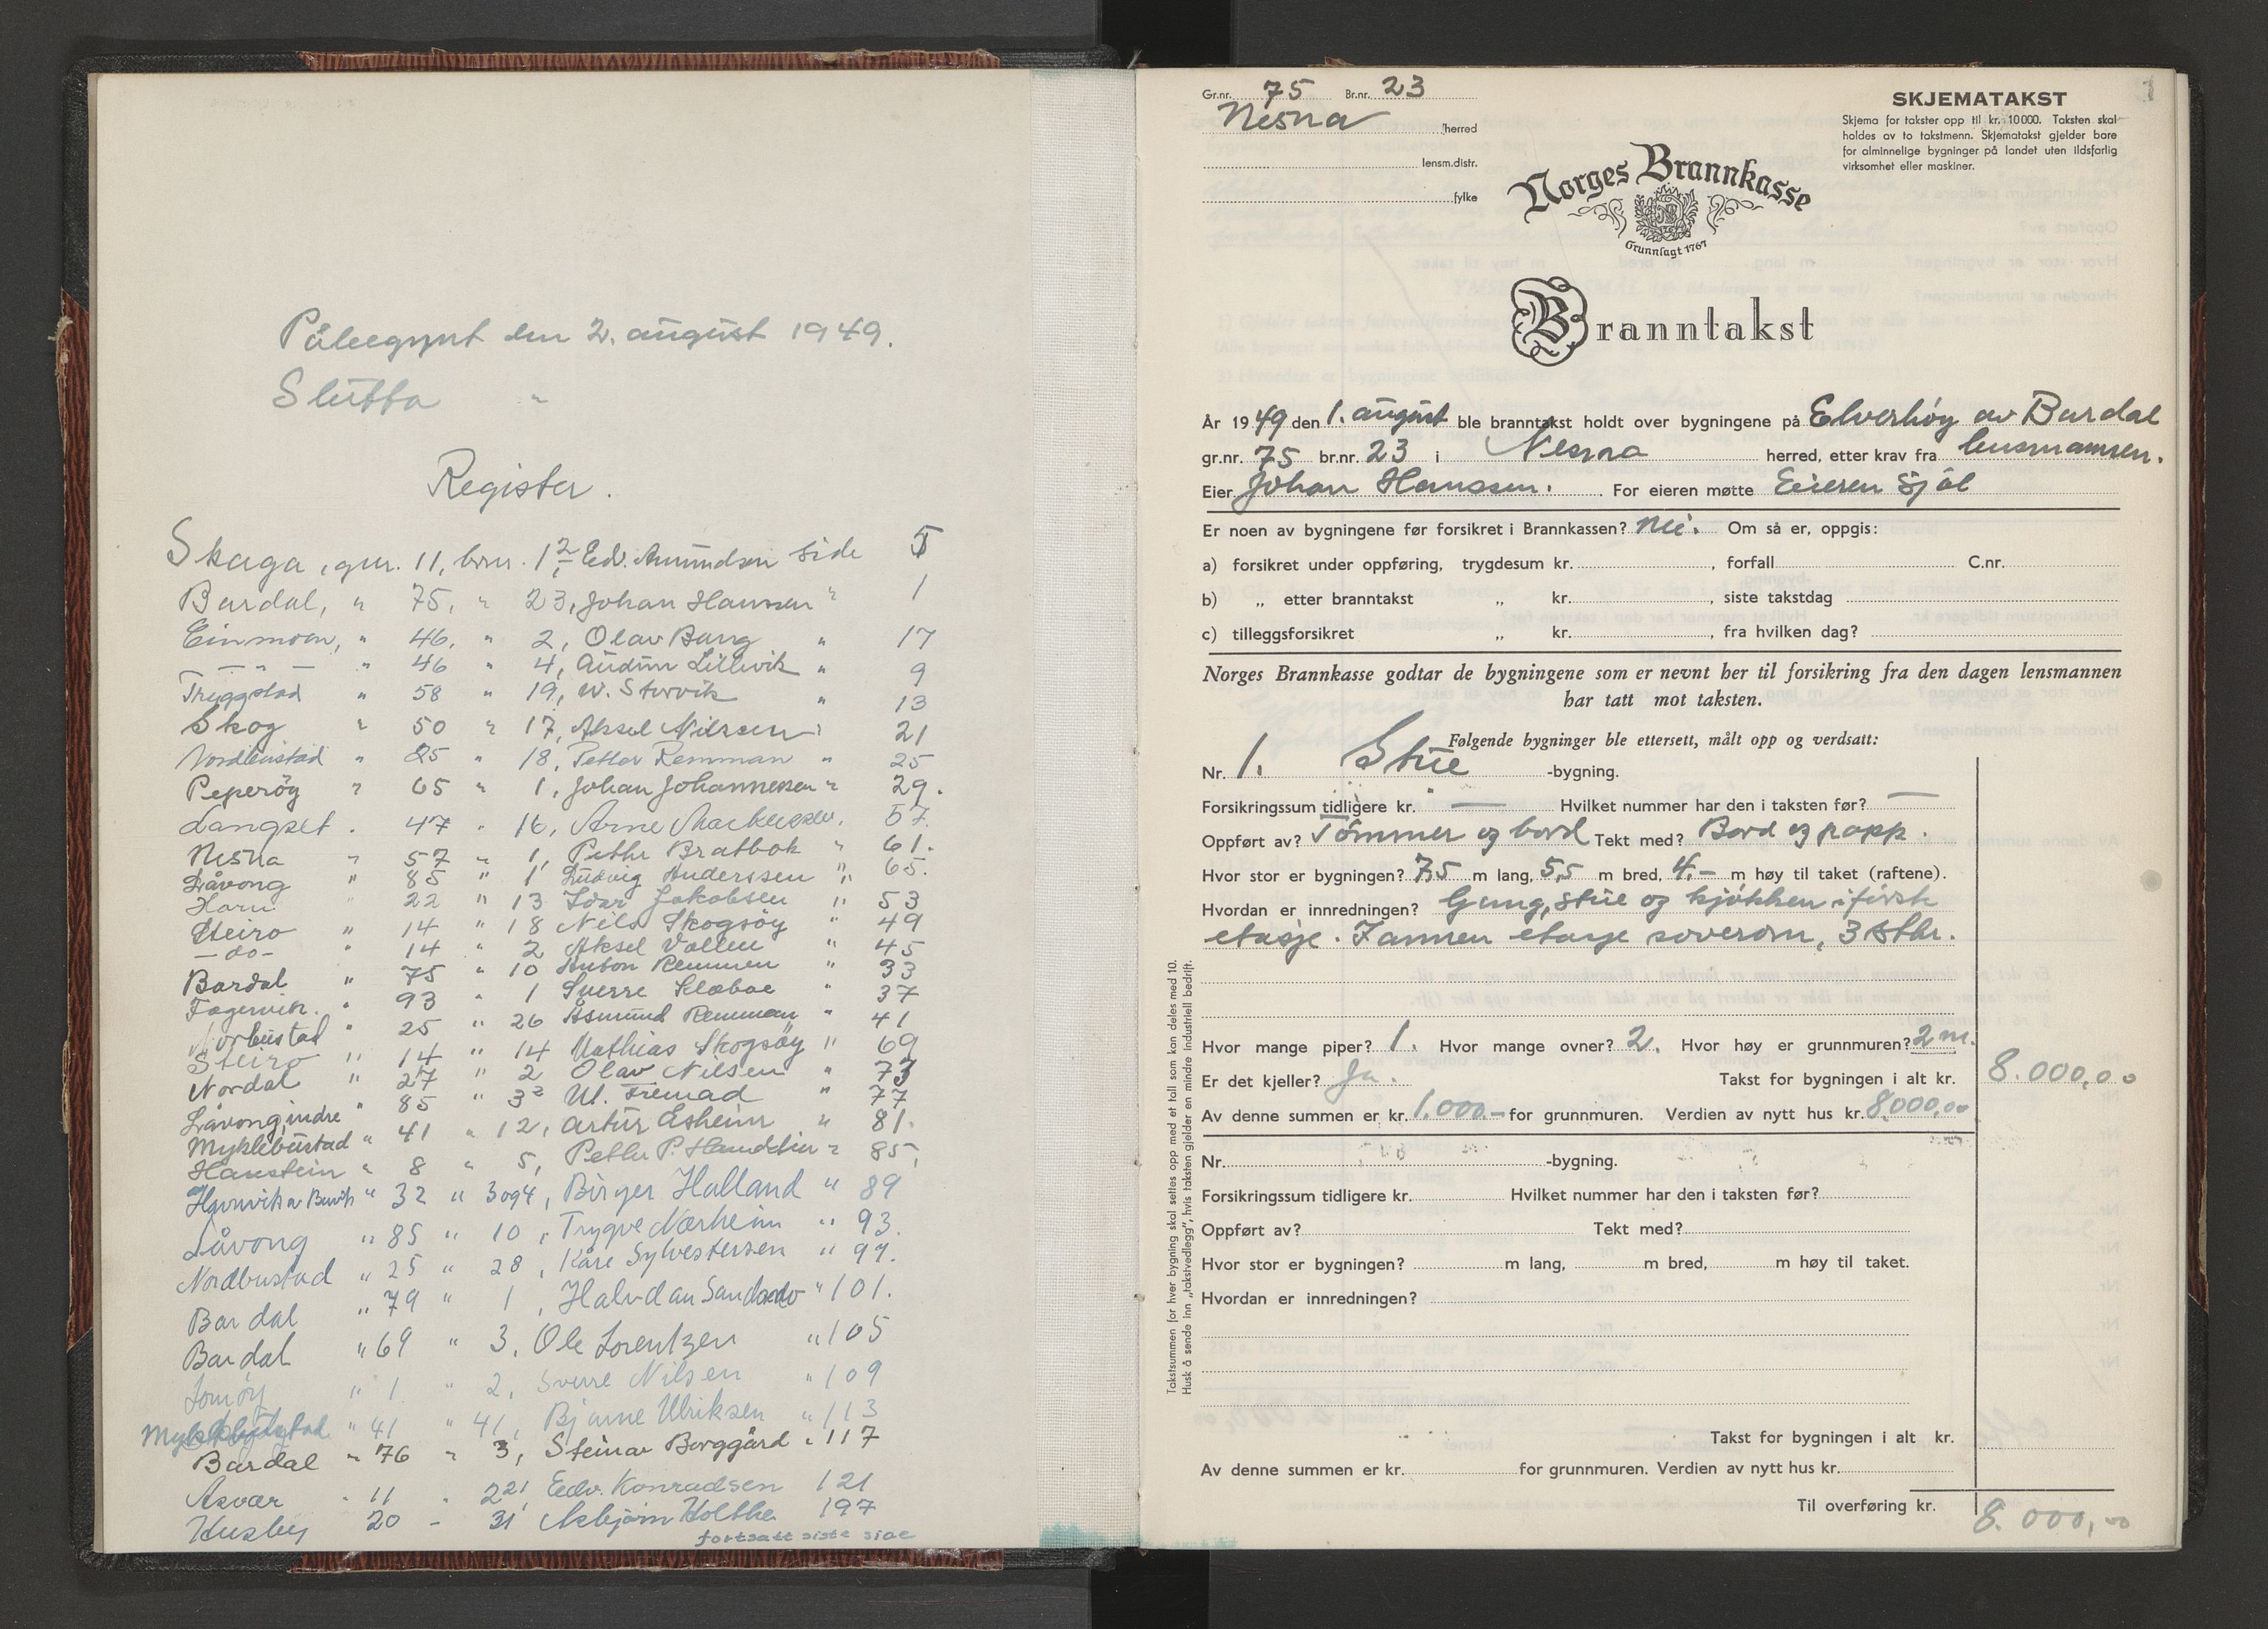 Påbegynt den 2. august 1949.
Slutta "
Register.
Skaga, gnr. 11, brnr. 1, 2 Edv. Amundsen side 5
Bardal, " 75, " 23, Johan Hanssen " 1
Einmoen, " 46, " 2, Olav Bang " 17
— " — " 46 " 4, Audun Lillevik " 9
Tryggstad " 58 " 19, W. Storvik " 13
Skog " 50 " 17, Aksel Nilssen " 21
Nordbustad " 25 " 18, Petter Remman " 25
Peperöy " 65 " 1, Johan Johannessen " 29.
Langset . 47 " 16, Arne Markussen. 57.
Nesna " 57 " 1, Petter Bratbak " 61.
Låvong " 85 " 1 Ludvig Anderssen " 65.
Horn " 22 " 13 Idar Jakobsen " 53
Steiro " 14 " 18 Nils Skogsöy " 49
— do — " 14 " 2 Aksel Vollen " 45
Bardal " 75 " 10 Anton Remmen " 33
Fagervik. " 93 " 1 Sverre Klæboe " 37
Norbustad " 25 " 26 Åsmund Remman " 41
Steiro " 14 " 14 Mathias Skogsöy " 69
Nordal " 27 " 2 Olav Nilsen " 73
Låvong indre " 85 " 3² Ul. " 77
Myklebustad " 41 " 12, Artur Esheim " 81.
Haustein " 8 " 5, Petter P. " 85,
" 32 " 3 og 4, Birger Halland " 89
Låvong " 85 " 10, Trygve Nærheim " 93.
Nordbustad " 25 " 28, Kåre Sylvestersen " 97.
Bardal " 79 " 1, Halvdan " 101.
Bardal " 69 " 3, Ole Lorentzen " 105
" 1 " 2, Sverre Nilsen " 109
Myklebustad " 41 " 41, Bjarne Ulriksen " 113
Bardal " 76 " 3, Steinar Borggård " 117
Asvær " 11 " 2²¹ Edv. Konradsen 121
Husby 20 " 31 Asbjørn Holthe 197
fortsatt siste side
1
Gr.nr. 75 Br.nr. 23
Nesna herred
lensm.distr.
fylke
SKJEMATAKST
Skjema for takster opp til kr. 10 000. Taksten skal
holdes av to takstmenn. Skjematakst gjelder bare
for alminnelige bygninger på landet uten ildsfarlig
virksomhet eller maskiner.
Norges Brannkasse
Grunnlagt 1767
Branntakst
År 1949 den 1. august ble branntakst holdt over bygningene på Elverhöy av Bardal
gr.nr. 75 br.nr. 23 i Nesna herred, etter krav fra lensmannen.
Eier Johan Hanssen. For eieren møtte Eieren sjöl
Er noen av bygningene før forsikret i Brannkassen? nei. Om så er, oppgis:
a) forsikret under oppføring, trygdesum kr. , forfall C.nr.
b) „ etter branntakst „ kr. , siste takstdag
c) tilleggsforsikret „ kr. , fra hvilken dag?
Norges Brannkasse godtar de bygningene som er nevnt her til forsikring fra den dagen lensmannen
har tatt mot taksten.
Følgende bygninger ble ettersett, målt opp og verdsatt:
Nr. 1. Stue -bygning.
Forsikringssum tidligere kr. — Hvilket nummer har den i taksten før? —
Oppført av? Tömmer og bord Tekt med? Bord og papp.
Hvor stor er bygningen? 7,5 m lang, 5,5 m bred, 4,- m høy til taket (raftene).
Hvordan er innredningen? Gang, stue og kjökken i förste
etasje. I annen etasje soverom, 3 stkr.
Hvor mange piper? 1. Hvor mange ovner? 2. Hvor høy er grunnmuren? 2 m.
Er det kjeller? Ja. Takst for bygningen i alt kr. 8.000,00
Av denne summen er kr. 1.000.- for grunnmuren. Verdien av nytt hus kr. 8000,00
Nr. -bygning.
Forsikringssum tidligere kr. Hvilket nummer har den i taksten før?
Oppført av? Tekt med?
Hvor stor er bygningen? m lang, m bred, m høy til taket.
Hvordan er innredningen?
Takst for bygningen i alt kr.
Av denne summen er kr. for grunnmuren. Verdien av nytt hus kr.
Til overføring kr. 8.000,00
Takstsummen for hver bygning skal settes opp med et tall som kan deles med 10.
Husk å sende inn „takstvedlegg“, hvis taksten gjelder en mindre industriell bedrift.